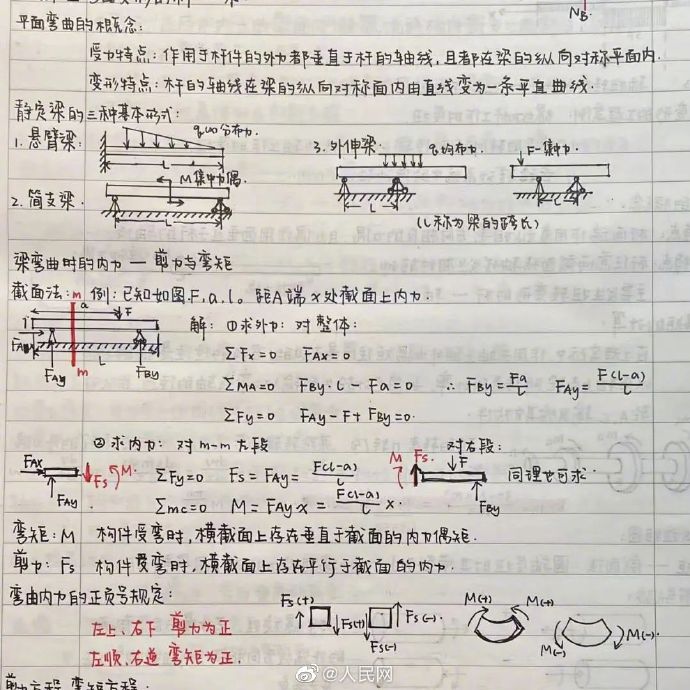 NB
平面弯曲的概念:
受力特点: 作用于杆件的外力都垂直于杆的轴线, 且都在梁的纵向对称平面内.
变形特点: 杆的轴线在梁的纵向对称面内由直线变为一条平面曲线.
静定梁的三种基本形式:
1. 悬臂梁. q(x)分布力. 3. 外伸梁. q均布力. F-集中力.
L
M集中力偶.
2. 简支梁. L L L
(L称为梁的跨长)
梁弯曲时的内力 — 剪力与弯矩
截面法: m 例: 已知如图, F, a, l。距A端x处截面上内力.
a F
解: ①求外力: 对整体:
FAx L ΣFx=0 FAx=0
FAy m FBy ΣMA=0 FBy·l-Fa=0 ∴FBy=Fa/l FAy=F(l-a)/l
ΣFy=0 FAy-F+FBy=0.
②求内力: 对m-m左段 对右段:
FAx Fs M. ΣFy=0 Fs=FAy=F(l-a)/l M Fs. F 同理也可求.
FAy Σmc=0 M=FAy·x=F(l-a)/l x. FBy
弯矩: M 构件受弯时, 横截面上存在垂直于截面的内力偶矩.
剪力: Fs 构件受弯时, 横截面上存在平行于截面的内力.
弯曲内力的正负号规定:
Fs(+) Fs(+) Fs(-) Fs(-) M(+) M(+) M(-) M(-)
左上, 右下 剪力为正
左顺, 右逆 弯矩为正.
@人民网
剪力方程, 弯矩方程: